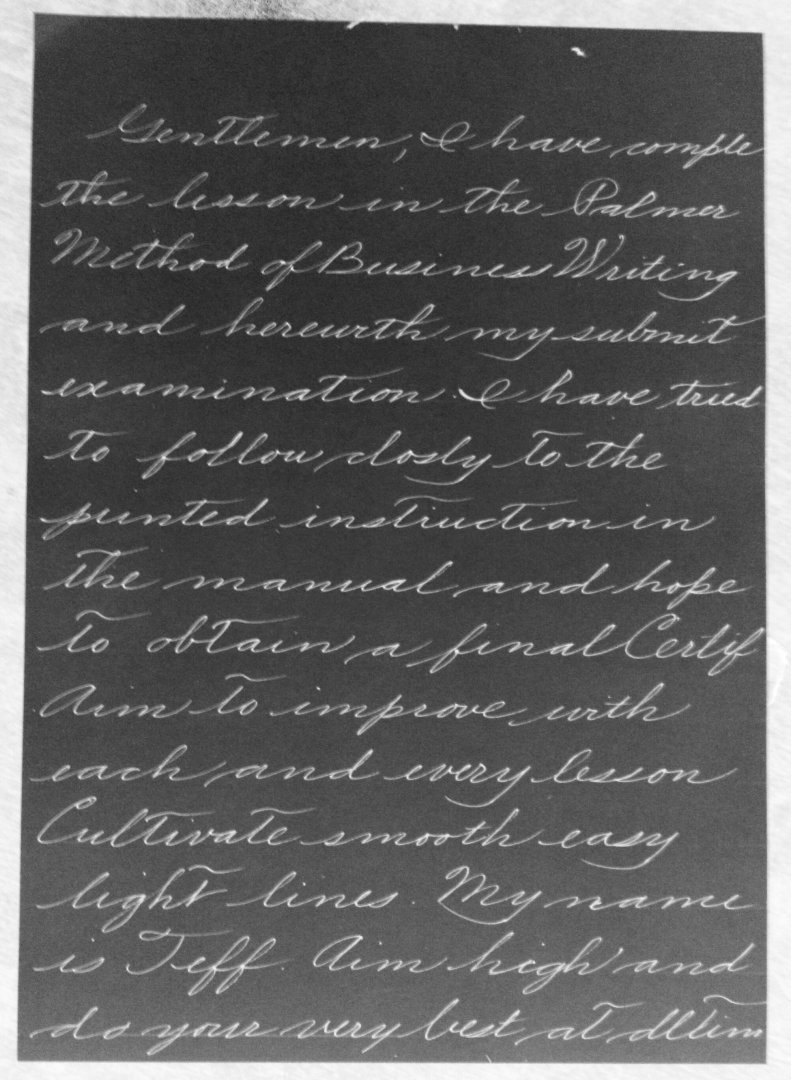 Gentlemen, I have comple
the lesson in the Palmer
Method of Business Writing
and herewith my submit
examination. I have tried
to follow closly to the
printed instruction in
the manual and hope
to obtain a final Certif
Aim to improve with
each and every lesson
Cultivate smooth easy
light lines. My name
is Jeff. Aim high and
do your very best at